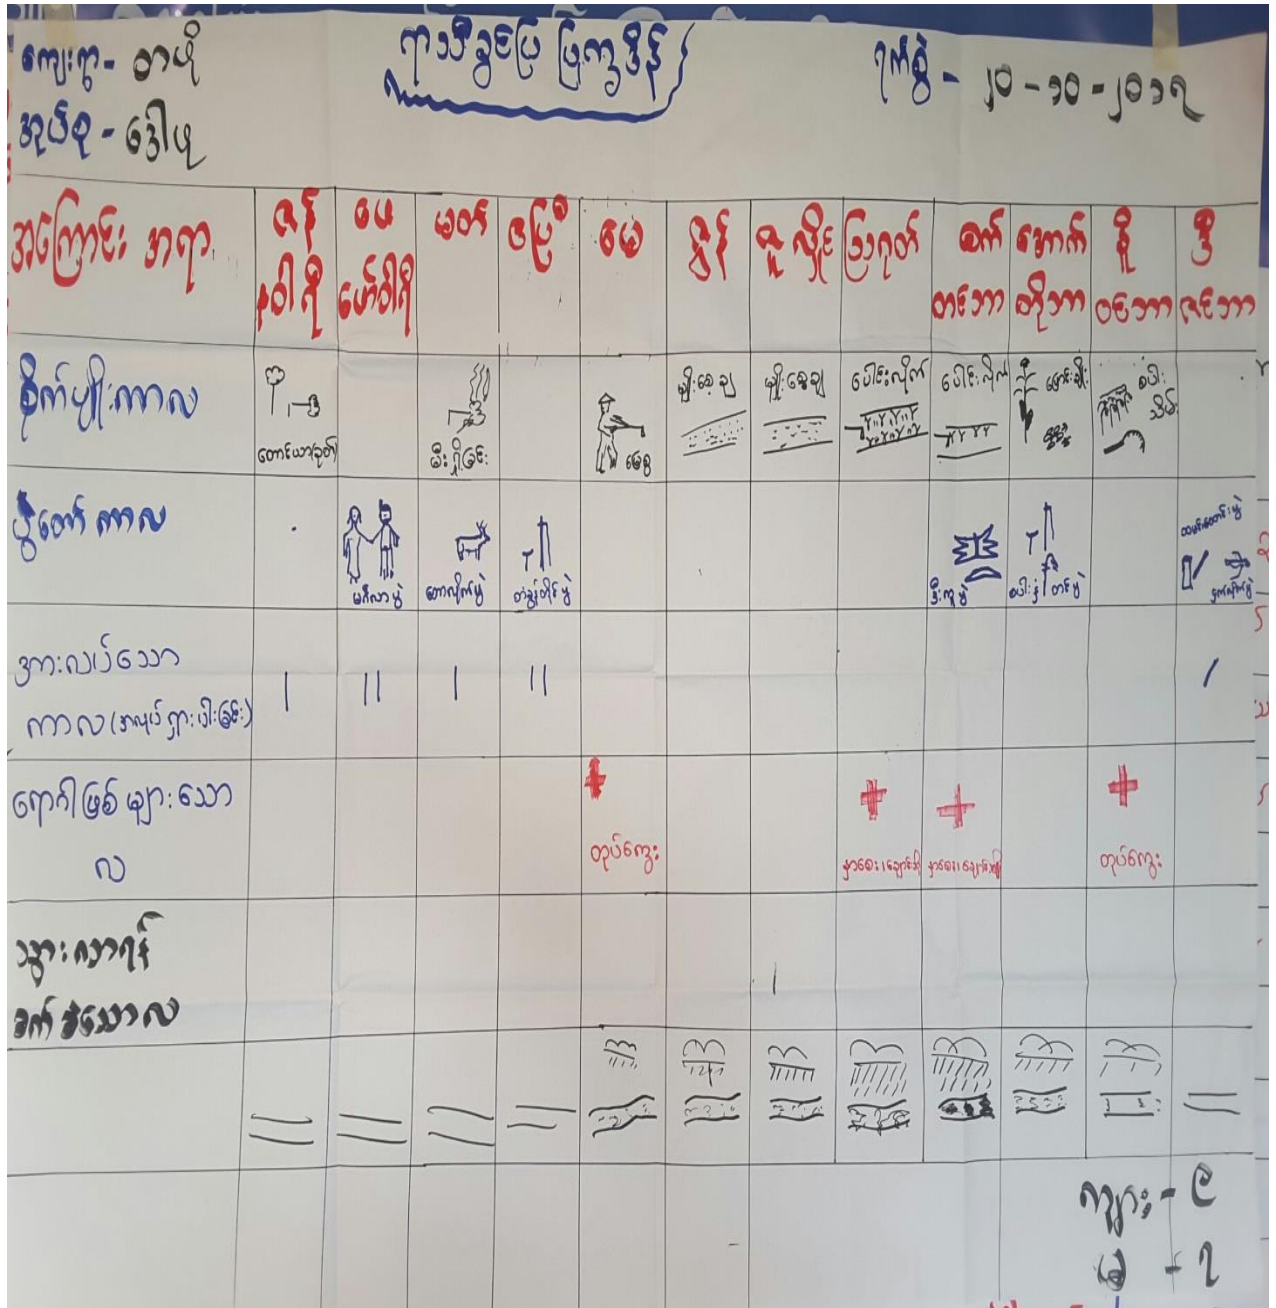 ကျေးရွာ - တဟို
ရာသီခွင်ပြ ပြက္ခဒိန်
ရက်စွဲ - ၂၀-၁၀-၂၀၁၇
အုပ်စု - ဒေါပု
အကြောင်း အရာ ဇန်နဝါရီ ဖေဖော်ဝါရီ မတ် ဧပြီ မေ ဇွန် ဇူလှိုင် ဩဂုတ် စက်တင်ဘာ အောက်တိုဘာ နိုဝင်ဘာ ဒီဇင်ဘာ
စိုက်ပျိုးကာလ
တောင်ယာ(ခုတ်)
မီးရှို့ခြင်း
မျိုးစေ့ချ
မျိုးစေ့ချ
ပေါင်းလိုက်
ပေါင်းလိုက်
စပါးသိမ်း
ပွဲတော် ကာလ
မင်္ဂလာပွဲ
တောလိုက်ပွဲ
တံခွန်တိုင်ပွဲ
ဒီးကူပွဲ
အားလပ်သော
ကာလ(အလုပ်ရှားပါးခြင်း)
ရောဂါဖြစ်များသော
လ
တုပ်ကွေး
နှာစေး၊ချောင်းဆိုး
နှာစေး၊ချောင်းဆိုး
တုပ်ကွေး
သွားလာရန်
ခက်ခဲသောလ
ကျား - ၉
မ - ၇